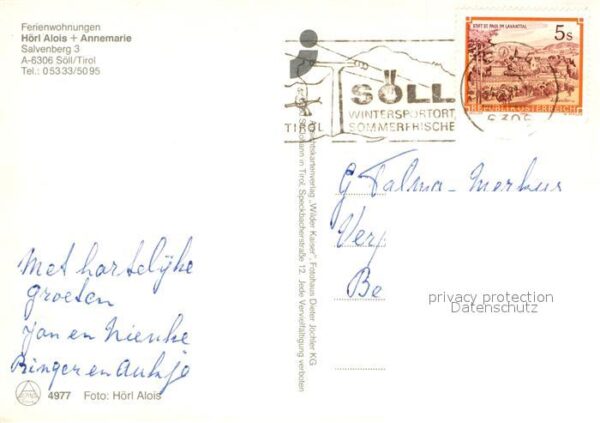 Ferienwohnungen
Hörl Alois + Annemarie
Salvenberg 3
A-6306 Söll/Tirol
Tel.: 0 53 33/50 95
Met hartelijke
groeten
Jan en Nienke
Ringer en Aukje
4977 Foto: Hörl Alois
Ansichtskartenverlag „Wilder Kaiser", Fotohaus Dieter Jöchler KG
Johann in Tirol, Speckbacherstraße 12. Jede Vervielfältigung verboten
TIROL
SÖLL
WINTERSPORTORT
SOMMERFRISCHE
STIFT ST. PAUL IM LAVANTTAL
5s
REPUBLIK ÖSTERREICH
G Talma - Merkus
Be
privacy protection
Datenschutz